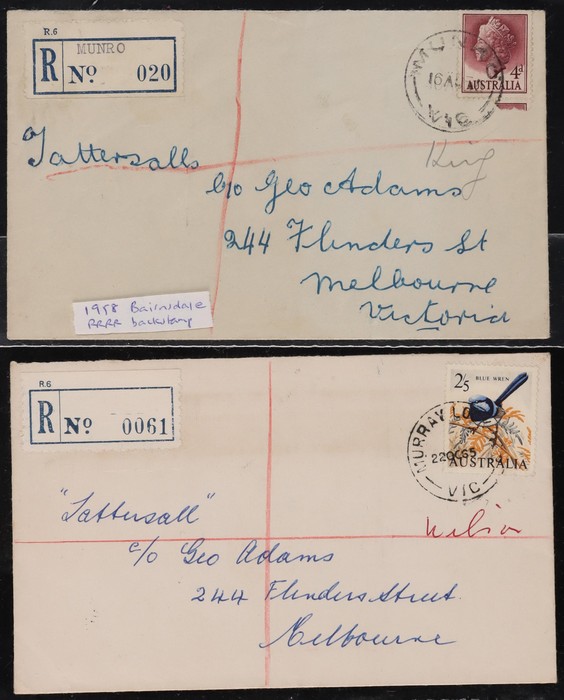 R.6
MUNRO
R No 020
MUNRO
16 AU
VIC
4d
AUSTRALIA
King
Tattersalls
c/o Geo Adams
244 Flinders St
Melbourne
Victoria
1958 Bairnsdale
RRRR backstamp
R.6
R No 0061
2/5 BLUE WREN
MURRAY LO
22 OC 65
VIC
AUSTRALIA
"Tattersall"
c/o Geo Adams
244 Flinders Street.
Melbourne